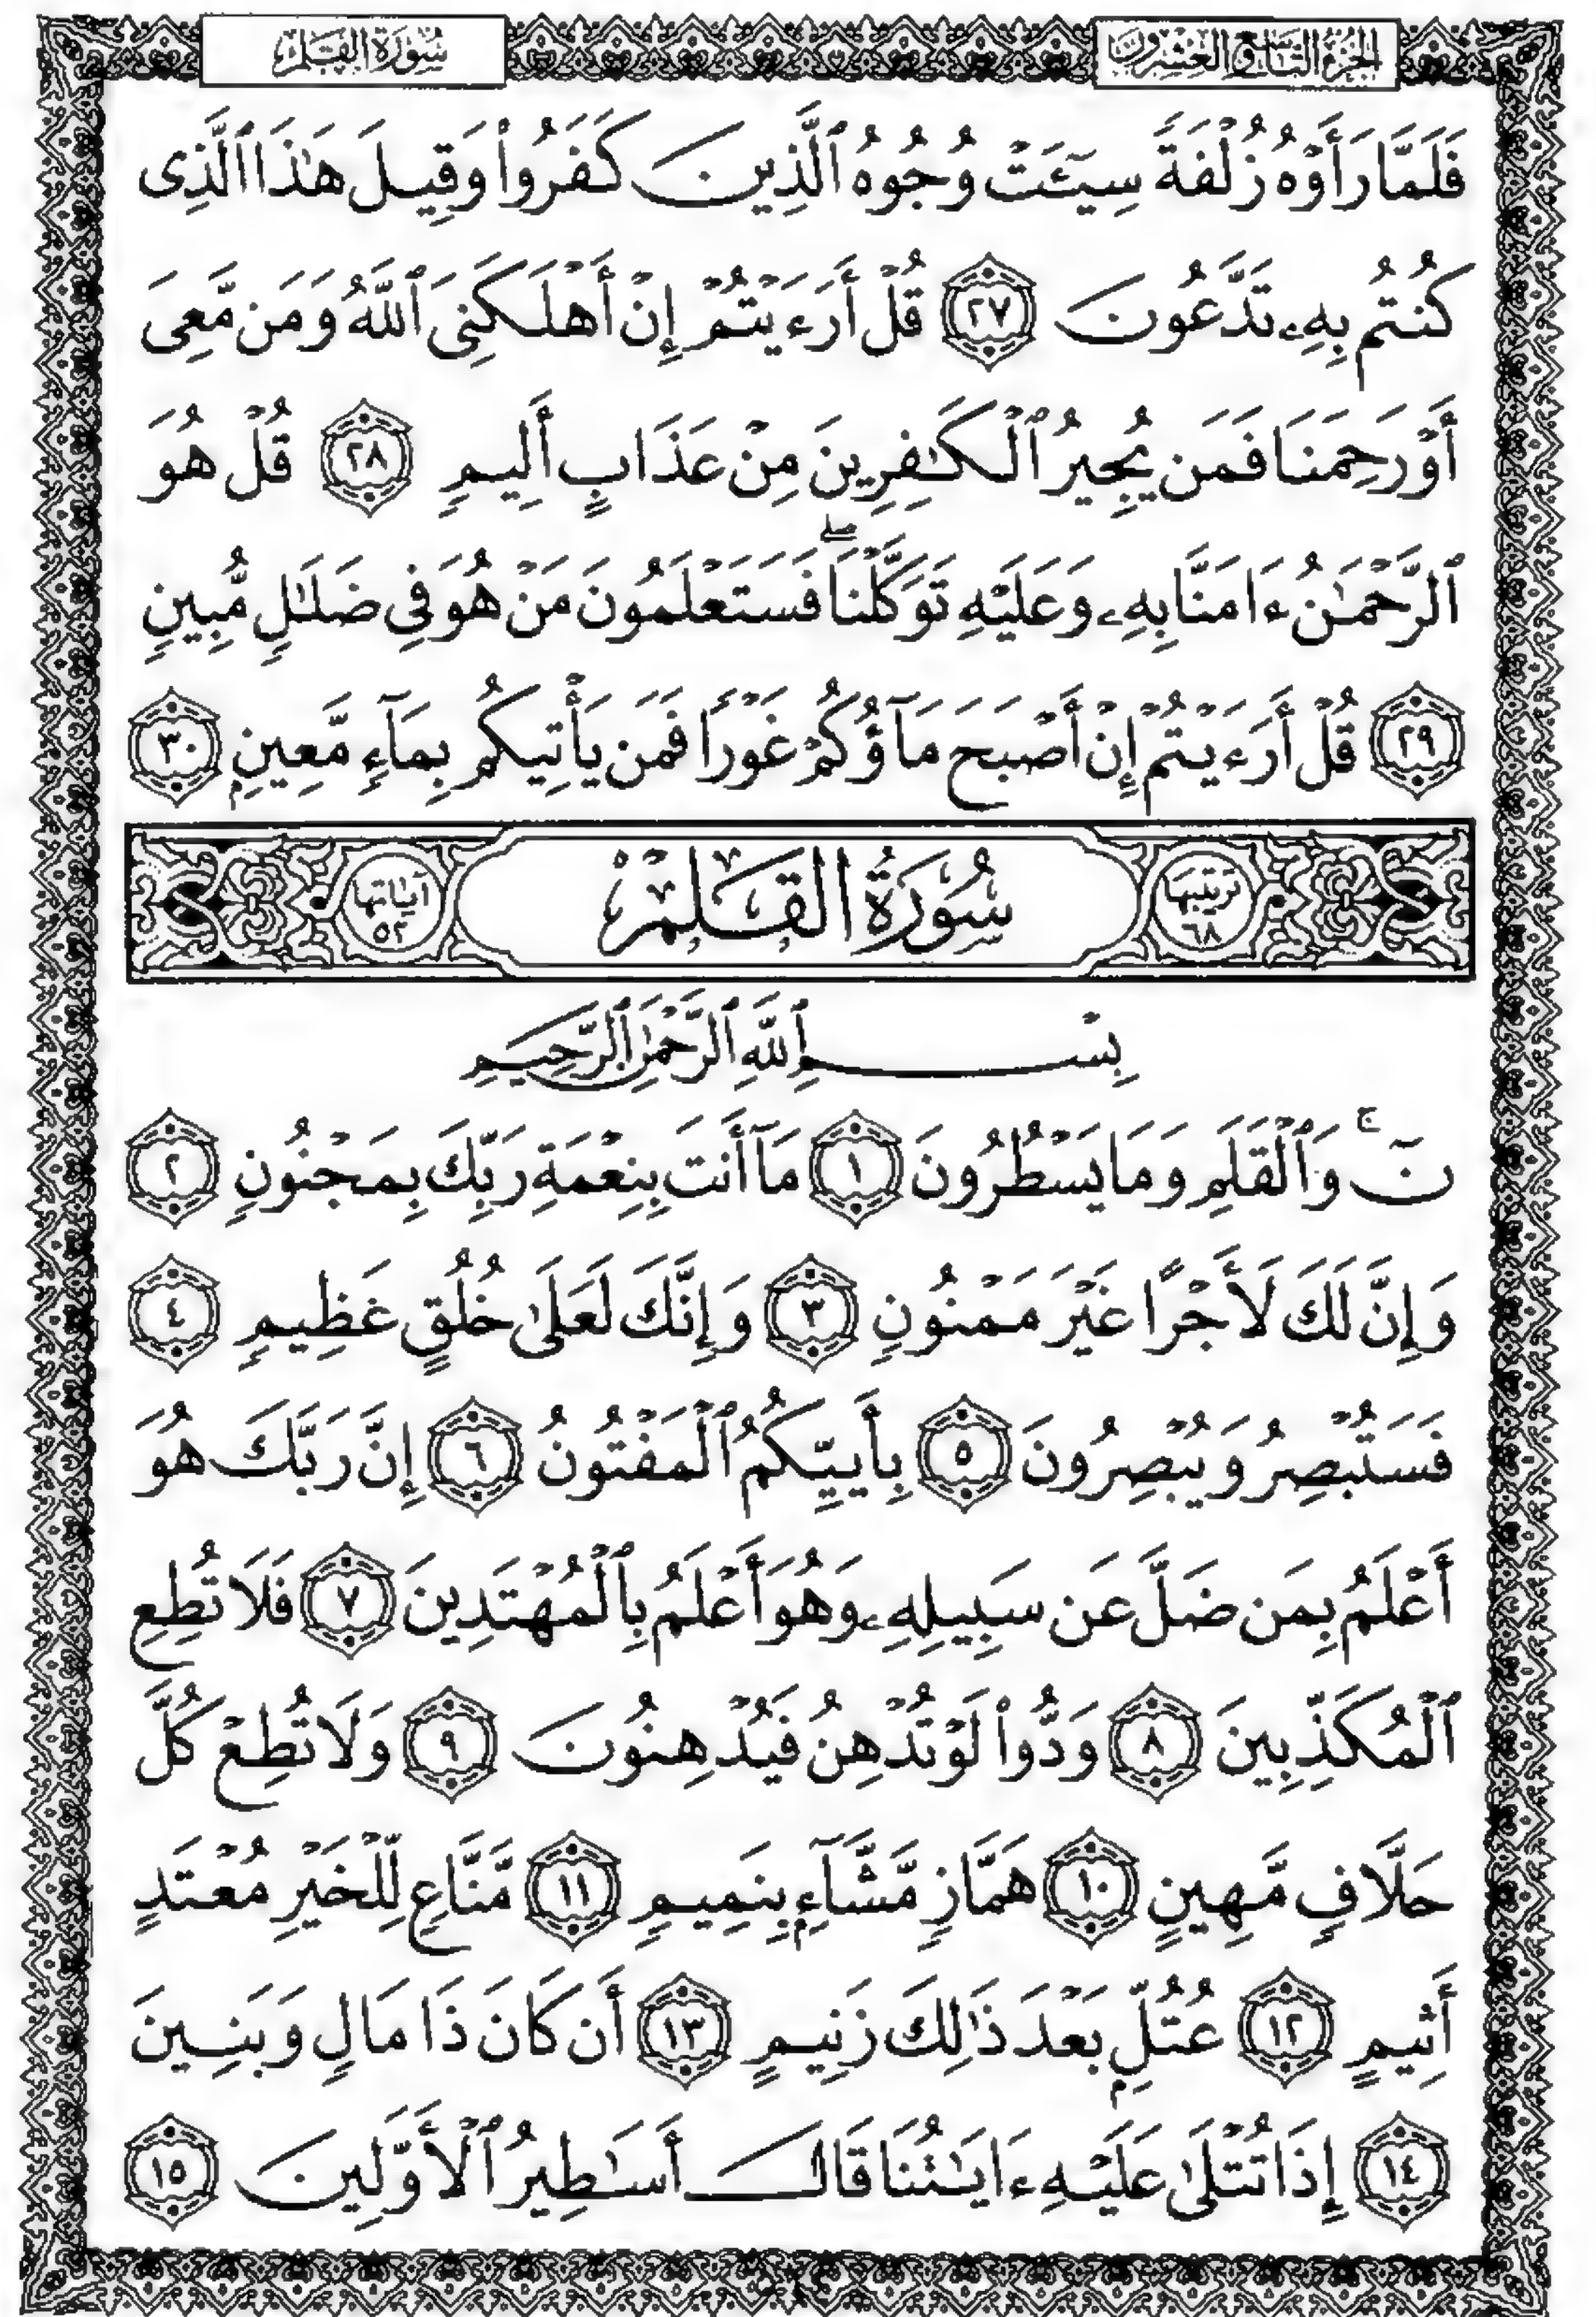 الجزء التاسع والعشرون
سورة القلم
فَلَمَّا رَأَوْهُ زُلْفَةً سِيٓـَٔتْ وُجُوهُ ٱلَّذِينَ كَفَرُوا۟ وَقِيلَ هَٰذَا ٱلَّذِى
كُنتُم بِهِۦ تَدَّعُونَ ٢٧ قُلْ أَرَءَيْتُمْ إِنْ أَهْلَكَنِىَ ٱللَّهُ وَمَن مَّعِىَ
أَوْ رَحِمَنَا فَمَن يُجِيرُ ٱلْكَٰفِرِينَ مِنْ عَذَابٍ أَلِيمٍ ٢٨ قُلْ هُوَ
ٱلرَّحْمَٰنُ ءَامَنَّا بِهِۦ وَعَلَيْهِ تَوَكَّلْنَا ۖ فَسَتَعْلَمُونَ مَنْ هُوَ فِى ضَلَٰلٍ مُّبِينٍ
٢٩ قُلْ أَرَءَيْتُمْ إِنْ أَصْبَحَ مَآؤُكُمْ غَوْرًا فَمَن يَأْتِيكُم بِمَآءٍ مَّعِينٍۭ ٣٠
ترتيبها ٦٨ سُورَةُ القَلَمْ آياتها ٥٢
بِسْمِ ٱللَّهِ ٱلرَّحْمَٰنِ ٱلرَّحِيمِ
نٓ ۚ وَٱلْقَلَمِ وَمَا يَسْطُرُونَ ١ مَآ أَنتَ بِنِعْمَةِ رَبِّكَ بِمَجْنُونٍ ٢
وَإِنَّ لَكَ لَأَجْرًا غَيْرَ مَمْنُونٍ ٣ وَإِنَّكَ لَعَلَىٰ خُلُقٍ عَظِيمٍ ٤
فَسَتُبْصِرُ وَيُبْصِرُونَ ٥ بِأَييِّكُمُ ٱلْمَفْتُونُ ٦ إِنَّ رَبَّكَ هُوَ
أَعْلَمُ بِمَن ضَلَّ عَن سَبِيلِهِۦ وَهُوَ أَعْلَمُ بِٱلْمُهْتَدِينَ ٧ فَلَا تُطِعِ
ٱلْمُكَذِّبِينَ ٨ وَدُّوا۟ لَوْ تُدْهِنُ فَيُدْهِنُونَ ٩ وَلَا تُطِعْ كُلَّ
حَلَّافٍ مَّهِينٍ ١٠ هَمَّازٍ مَّشَّآءٍۭ بِنَمِيمٍ ١١ مَّنَّاعٍ لِّلْخَيْرِ مُعْتَدٍ
أَثِيمٍ ١٢ عُتُلٍّۭ بَعْدَ ذَٰلِكَ زَنِيمٍ ١٣ أَن كَانَ ذَا مَالٍ وَبَنِينَ
١٤ إِذَا تُتْلَىٰ عَلَيْهِ ءَايَٰتُنَا قَالَ أَسَٰطِيرُ ٱلْأَوَّلِينَ ١٥